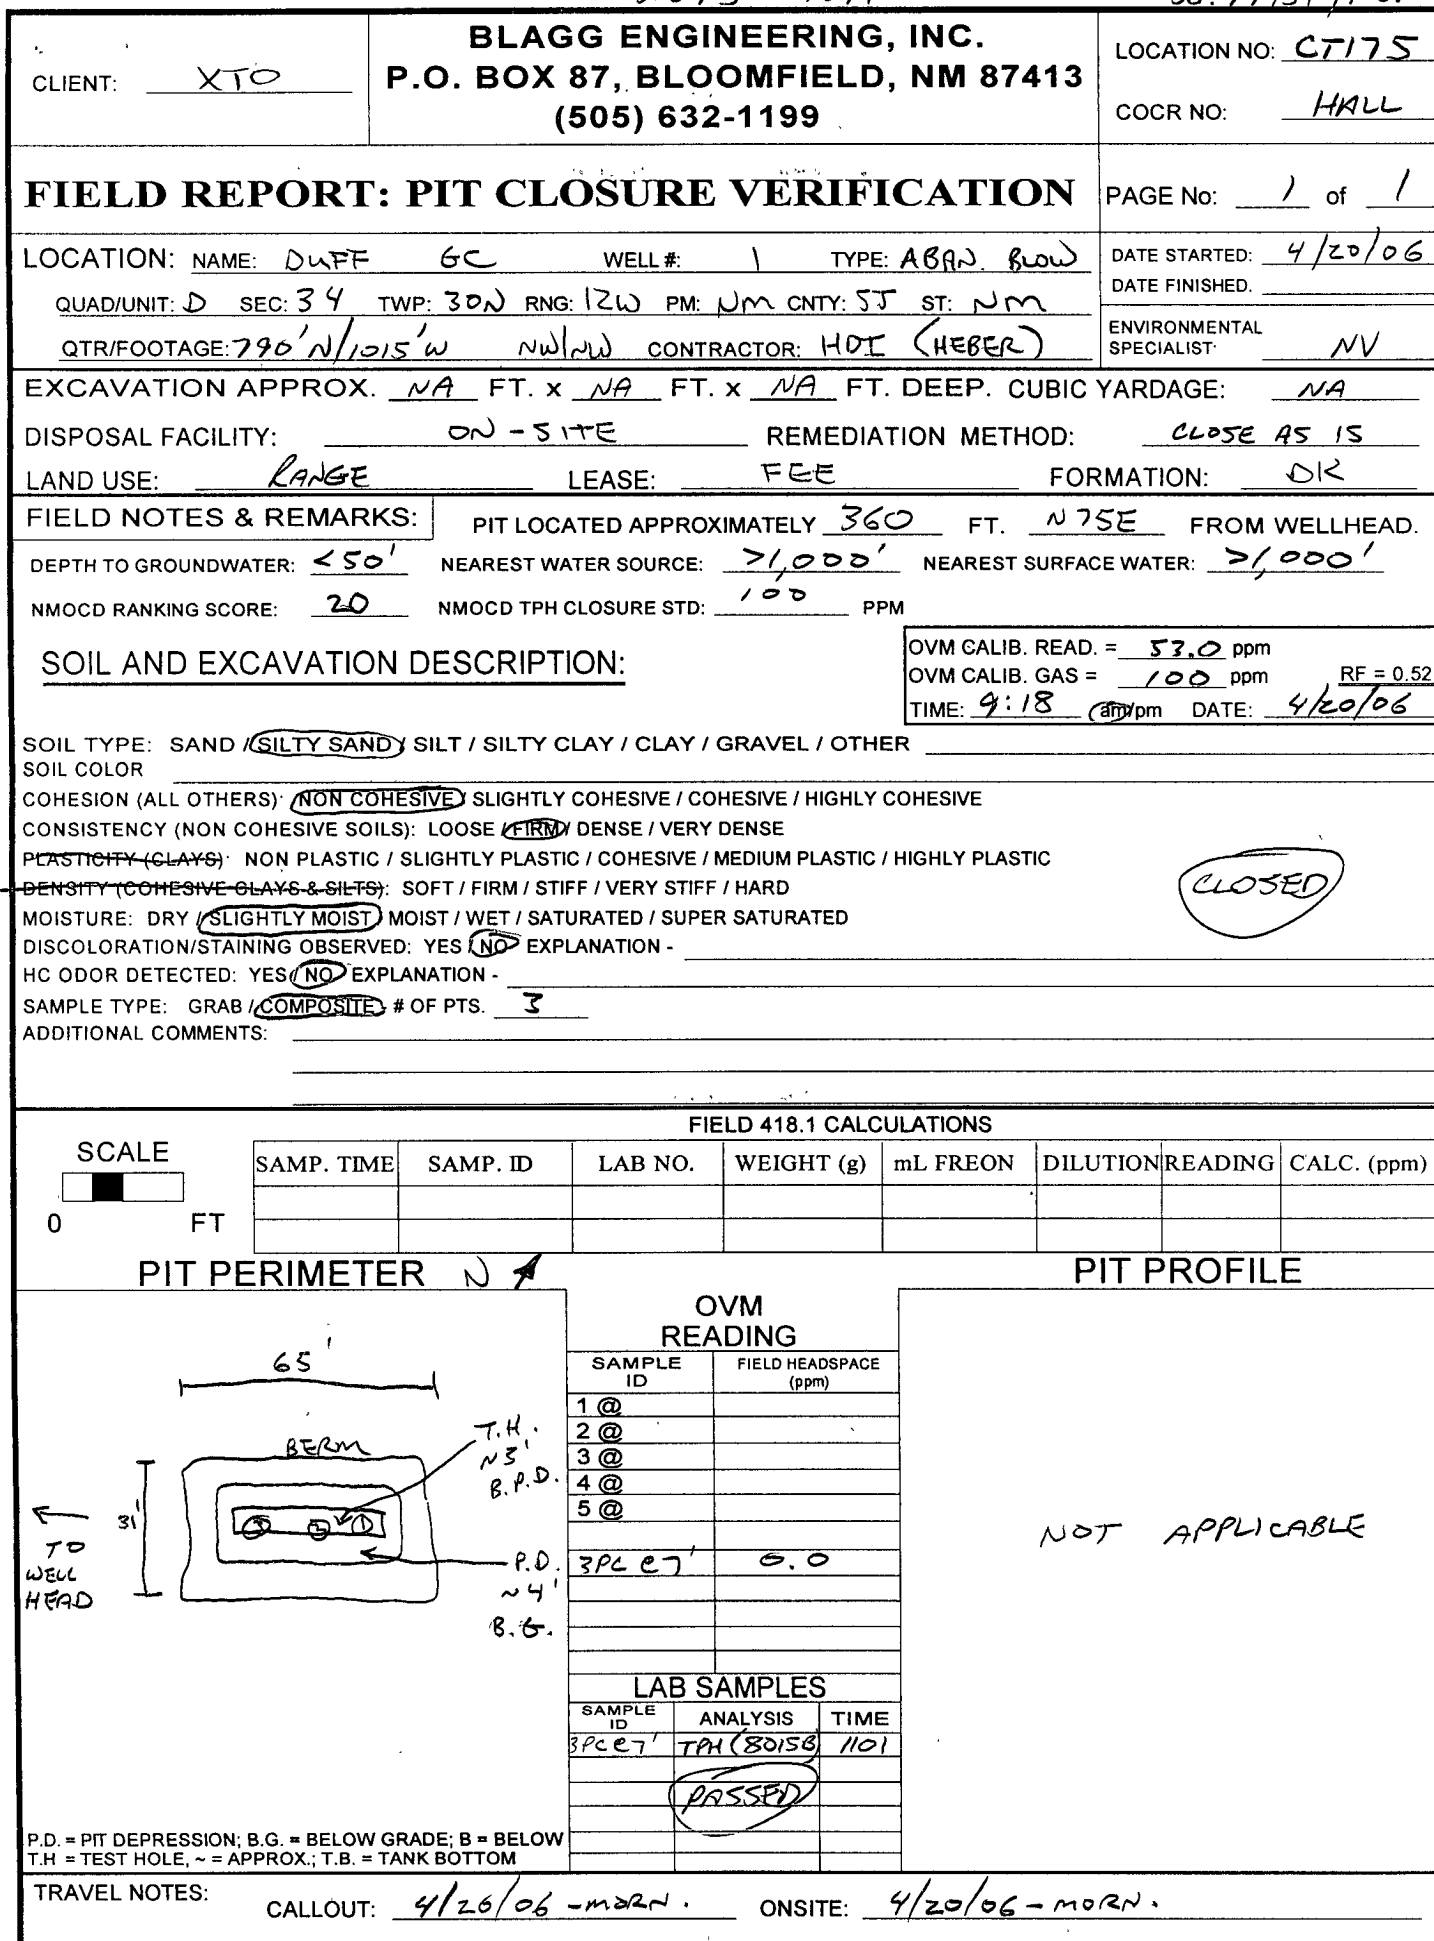 BLAGG ENGINEERING, INC.
P.O. BOX 87, BLOOMFIELD, NM 87413
(505) 632-1199
CLIENT: XTO
LOCATION NO: CT175
COCR NO: HALL
FIELD REPORT: PIT CLOSURE VERIFICATION
PAGE No: 1 of 1
LOCATION: NAME: DUFF GC WELL #: 1 TYPE: ABAN. BLOW
QUAD/UNIT: D SEC: 34 TWP: 30N RNG: 12W PM: NM CNTY: SJ ST: NM
QTR/FOOTAGE: 790'N/1015'W NW/NW CONTRACTOR: HDI (HEBER)
DATE STARTED: 4/20/06
DATE FINISHED.
ENVIRONMENTAL
SPECIALIST: NV
EXCAVATION APPROX. NA FT. x NA FT. x NA FT. DEEP. CUBIC YARDAGE: NA
DISPOSAL FACILITY: ON-SITE REMEDIATION METHOD: CLOSE AS IS
LAND USE: RANGE LEASE: FEE FORMATION: DK
FIELD NOTES & REMARKS: PIT LOCATED APPROXIMATELY 360 FT. N75E FROM WELLHEAD.
DEPTH TO GROUNDWATER: <50' NEAREST WATER SOURCE: >1,000' NEAREST SURFACE WATER: >1,000'
NMOCD RANKING SCORE: 20 NMOCD TPH CLOSURE STD: 100 PPM
SOIL AND EXCAVATION DESCRIPTION:
OVM CALIB. READ. = 53.0 ppm
OVM CALIB. GAS = 100 ppm RF = 0.52
TIME: 9:18 am/pm DATE: 4/20/06
SOIL TYPE: SAND / SILTY SAND / SILT / SILTY CLAY / CLAY / GRAVEL / OTHER
SOIL COLOR
COHESION (ALL OTHERS): NON COHESIVE / SLIGHTLY COHESIVE / COHESIVE / HIGHLY COHESIVE
CONSISTENCY (NON COHESIVE SOILS): LOOSE / FIRM / DENSE / VERY DENSE
PLASTICITY (CLAYS): NON PLASTIC / SLIGHTLY PLASTIC / COHESIVE / MEDIUM PLASTIC / HIGHLY PLASTIC
DENSITY (COHESIVE CLAYS & SILTS): SOFT / FIRM / STIFF / VERY STIFF / HARD
MOISTURE: DRY / SLIGHTLY MOIST / MOIST / WET / SATURATED / SUPER SATURATED
DISCOLORATION/STAINING OBSERVED: YES / NO EXPLANATION -
HC ODOR DETECTED: YES / NO EXPLANATION -
SAMPLE TYPE: GRAB / COMPOSITE - # OF PTS. 3
ADDITIONAL COMMENTS:
CLOSED
FIELD 418.1 CALCULATIONS
SCALE
0 FT
SAMP. TIME SAMP. ID LAB NO. WEIGHT (g) mL FREON DILUTION READING CALC. (ppm)
PIT PERIMETER N
PIT PROFILE
65'
BERM
T.H.
~3'
B.P.D.
31'
3 2 1
TO
WELL
HEAD
P.D.
~4'
B.G.
OVM
READING
SAMPLE ID FIELD HEADSPACE (ppm)
1 @
2 @
3 @
4 @
5 @
3PC @7' 0.0
LAB SAMPLES
SAMPLE ID ANALYSIS TIME
3PC @7' TPH (8015B) 1101
PASSED
NOT APPLICABLE
P.D. = PIT DEPRESSION; B.G. = BELOW GRADE; B = BELOW
T.H = TEST HOLE, ~ = APPROX.; T.B. = TANK BOTTOM
TRAVEL NOTES: CALLOUT: 4/20/06 - MORN. ONSITE: 4/20/06 - MORN.